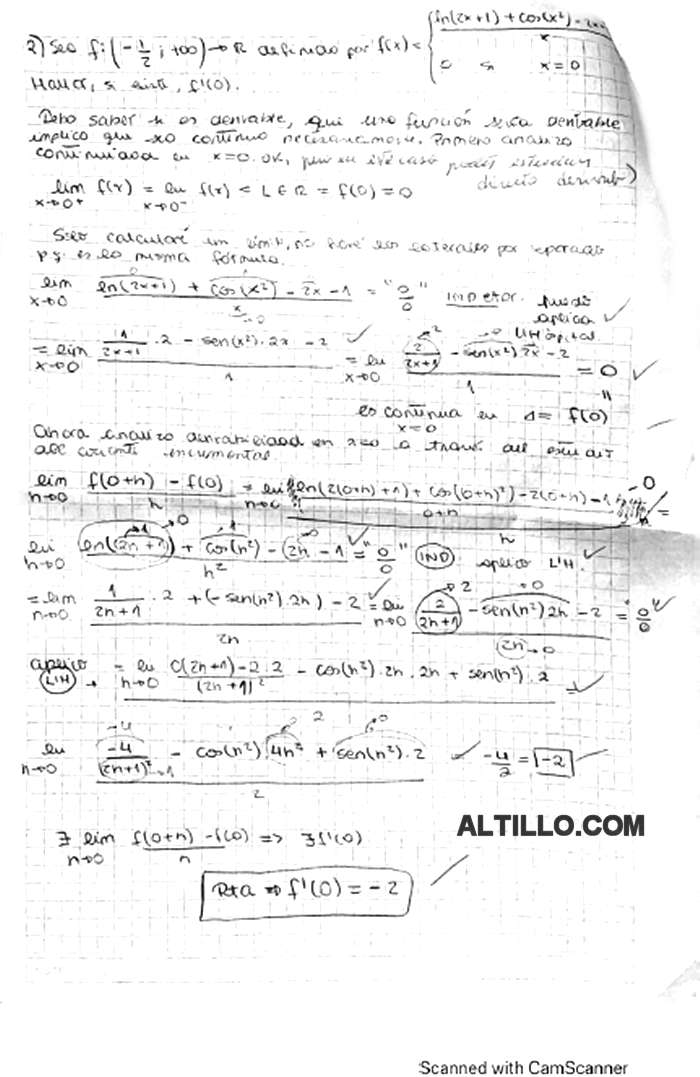 2) Sea f: (-1/2 ; +∞) → R definida por f(x) = { ln(2x+1) + cos(x²) - 2x
x
0 si x=0
Hallar, si existe, f'(0).
Debo saber si es derivable, que una función sea derivable
implica que sea continua necesariamente. Primero analizo
continuidad en x=0. OK, pero en este caso podés estudiar
directo derivab)
lim x→0⁺ f(x) = lim x→0⁻ f(x) = L ∈ R = f(0) = 0
Solo calcularé un límite, no haré los laterales por separado
p.q. es la misma fórmula.
lim x→0 ln(2x+1) + cos(x²) - 2x - 1 / x = "0/0" indeter. puedo
aplica
L'Hôpital
= lim x→0 (1/(2x+1) · 2 - sen(x²) · 2x - 2) / 1 = lim x→0 (2/(2x+1) - sen(x²) 2x - 2) / 1 = 0
es continua en x=0 = f(0)
Ahora analizo derivabilidad en x=0 a través del
del cociente incremental.
lim h→0 (f(0+h) - f(0)) / h = lim h→0 (ln(2(0+h)+1) + cos((0+h)²) - 2(0+h) - 1 / (0+h) - 0) / h =
lim h→0 (ln(2h+1) + cos(h²) - 2h - 1) / h² = "0/0" (IND) aplico L'H.
= lim h→0 (1/(2h+1) · 2 + (-sen(h²) · 2h) - 2) / 2h = lim h→0 (2/(2h+1) - sen(h²) 2h - 2) / 2h = "0/0"
aplico L'H → = lim h→0 ((0(2h+1) - 2·2)/(2h+1)² - cos(h²) · 2h · 2h + sen(h²) · 2) / 2 =
lim h→0 (-4/(2h+1)² - cos(h²) 4h² + sen(h²) · 2) / 2 -4/2 = -2
∃ lim h→0 (f(0+h) - f(0)) / h => ∃ f'(0)
ALTILLO.COM
Rta ⇒ f'(0) = -2
Scanned with CamScanner